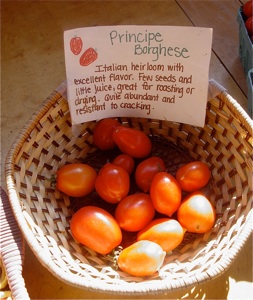 Principe
Borghese
Italian heirloom with
excellent flavor. Few seeds and
little juice, great for roasting or
drying. Quite abundant and
resistant to cracking.